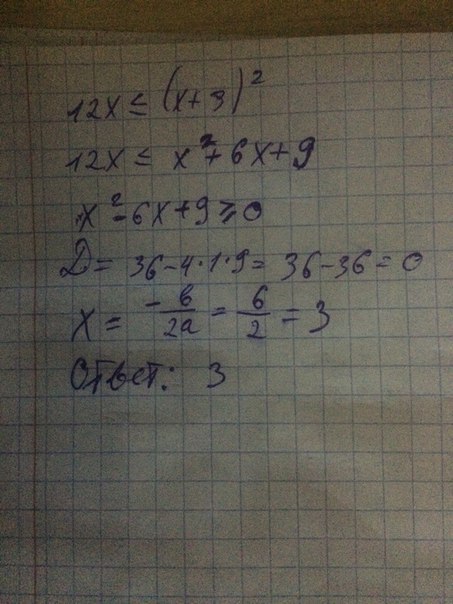 12x ≤ (x+3)²
12x ≤ x²+6x+9
x²-6x+9≥0
D= 36-4·1·9= 36-36=0
x = -b/2a = 6/2 = 3
Ответ: 3